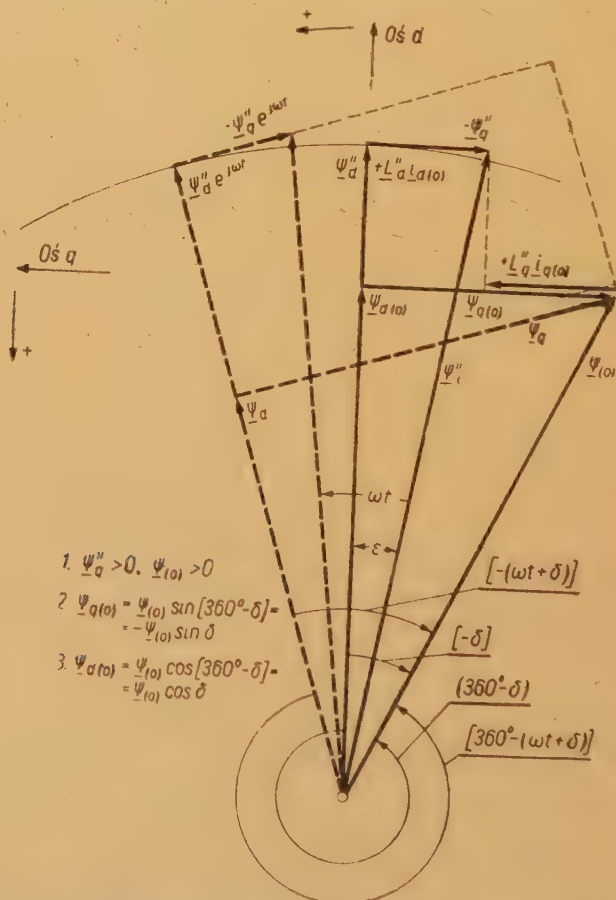 +
Oś d
-Ψ"q e^jωt
-Ψ"q
Ψ"d
+L"d i d(0)
Ψ"d e^jωt
Oś q
+
+L"q i q(0)
Ψd(0)
Ψq(0)
Ψq
Ψ(0)
Ψ"i
Ψd
ωt
ε
1. Ψ"q >0, Ψ(0) >0
2. Ψq(0) = Ψ(0) sin[360°-δ]=
= -Ψ(0) sin δ
3. Ψd(0) = Ψ(0) cos[360°-δ]=
= Ψ(0) cos δ
[-(ωt+δ)]
[-δ]
(360°-δ)
[360°-(ωt+δ)]